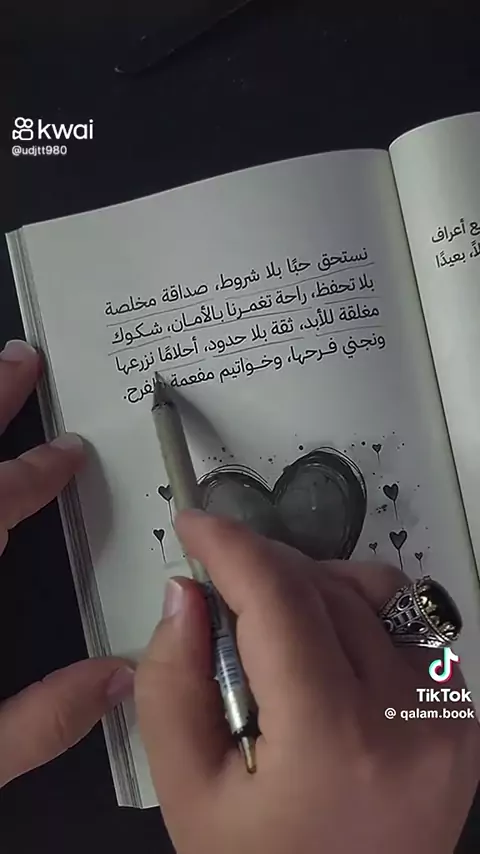 kwai
@udjtt980
نستحق حبًا بلا شروط، صداقة مخلصة
بلا تحفظ، راحة تغمـرنا بالأمـان، شـكوك
مغلقة للأبد، ثقة بلا حدود، أحلامًا نزرعها
ونجني فـرحها، وخـواتيم مفعمة بالفرح.
أعراف
بعيدًا
TikTok
@ qalam.book